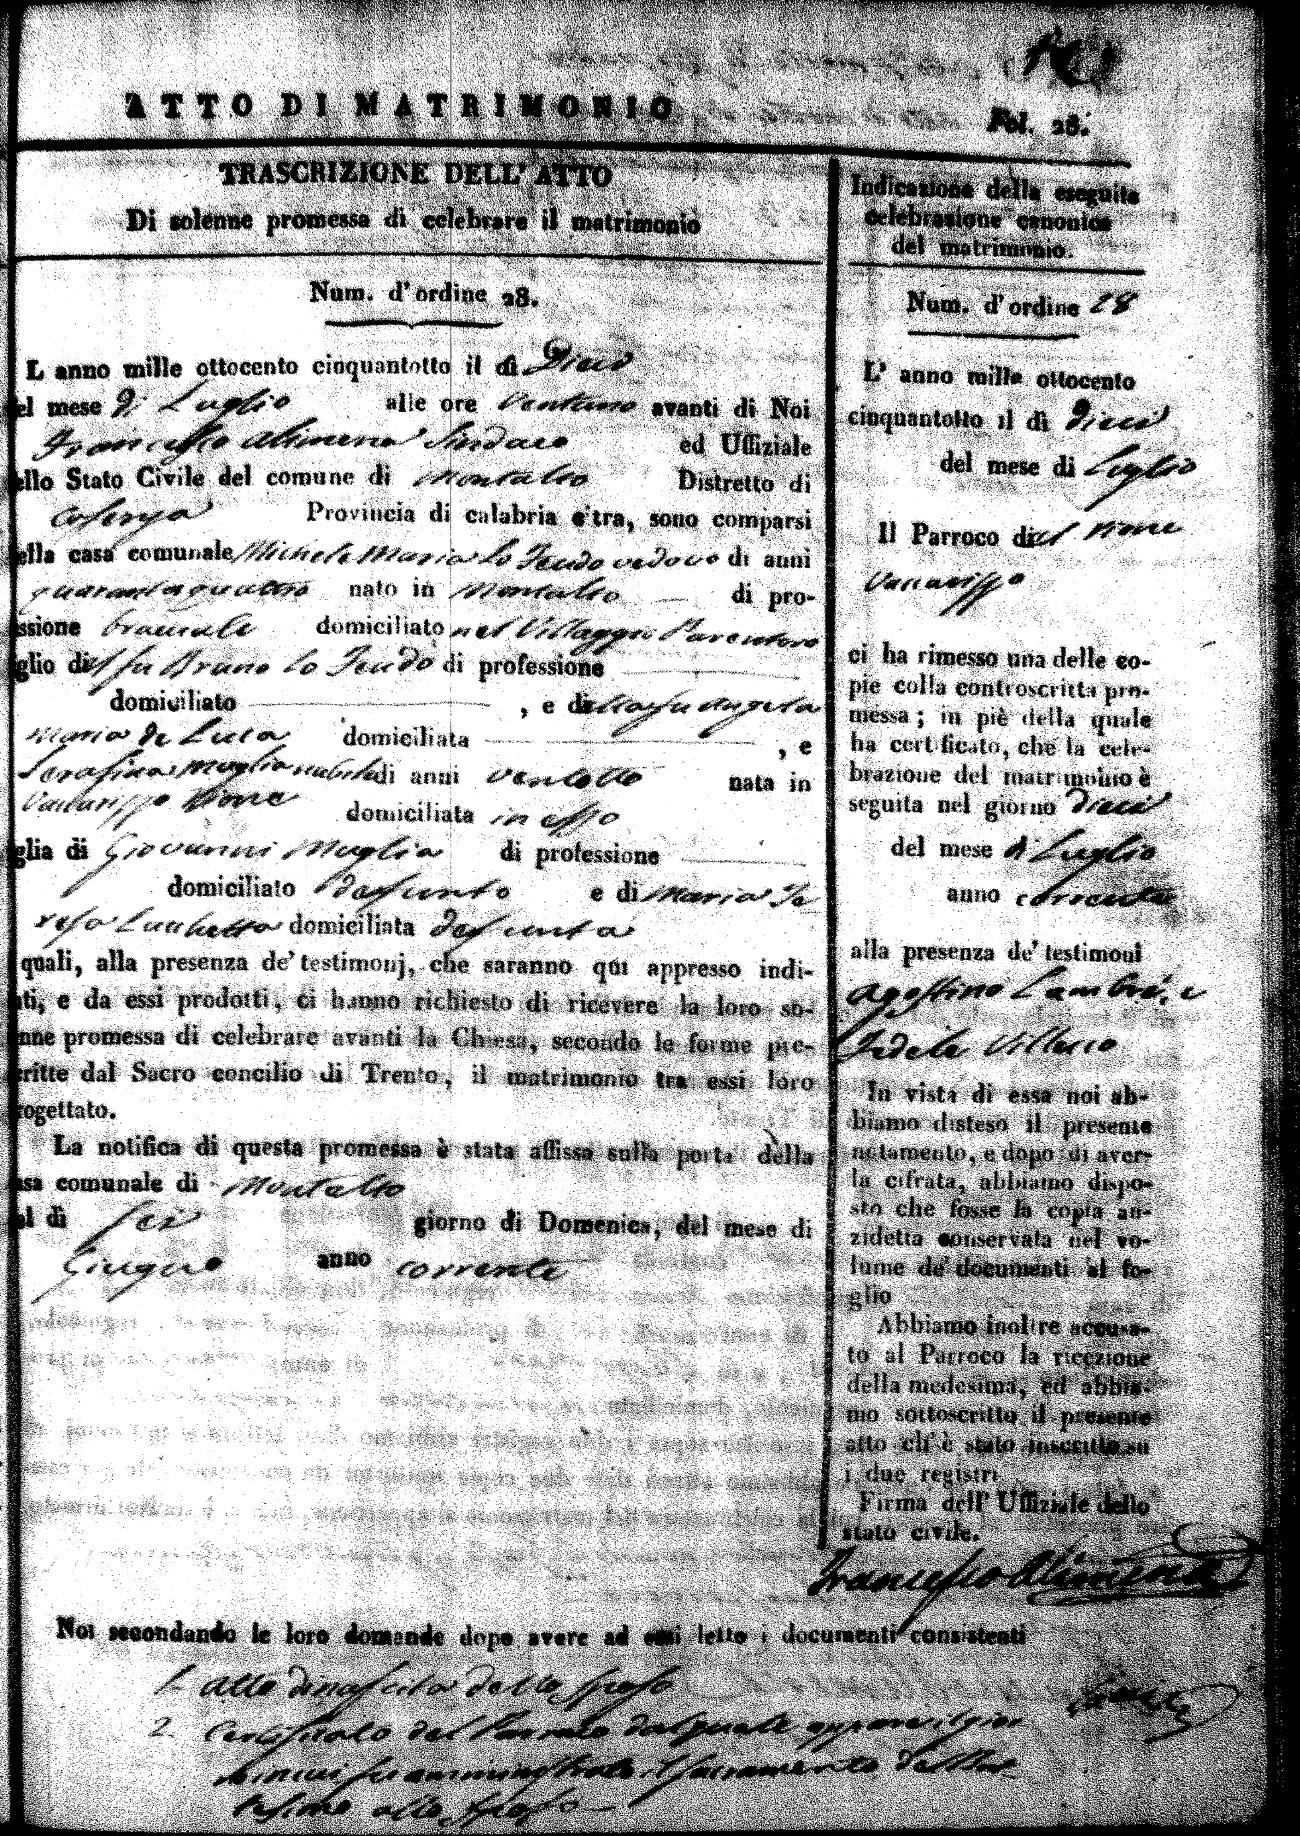 ATTO DI MATRIMONIO
Fol. 28.
TRASCRIZIONE DELL' ATTO
Di solenne promessa di celebrare il matrimonio
Num. d' ordine 28.
L anno mille ottocento cinquantotto il dì Dieci
el mese di Luglio alle ore ventuno avanti di Noi
Francesco Alimena Sindaco ed Uffiziale
ello Stato Civile del comune di Montalto Distretto di
Cosenza Provincia di calabria c'tra, sono comparsi
ella casa comunale Michele Maria Lo Feudo vedovo di anni
quarantaquattro nato in Montalto di pro-
ssione bracciale domiciliato nel Villaggio Parantoro
glio di fu Bruno Lo Feudo di professione
domiciliato , e della fu Angela
Maria de Luca domiciliata , e
Serafina Muglia nubile di anni ventotto nata in
Vaccarizzo Rione domiciliata in esso
glia di Giovanni Muglia di professione
domiciliato defunto e di Maria Te
resa domiciliata defunta
quali, alla presenza de' testimonj, che saranno quì appresso indi-
ati, e da essi prodotti, ci hanno richiesto di ricevere la loro so-
nne promessa di celebrare avanti la Chiesa, secondo le forme pre-
critte dal Sacro concilio di Trento, il matrimonio tra essi loro
rogettato.
La notifica di questa promessa è stata affissa sulla porta della
asa comunale di Montalto
al dì sei giorno di Domenica, del mese di
Giugno anno corrente
Indicazione della eseguita
celebrazione canonica
del matrimonio.
Num. d' ordine 28
L' anno mille ottocento
cinquantotto il dì dieci
del mese di Luglio
Il Parroco del Rione
Vaccarizzo
ci ha rimesso una delle co-
pie colla controscritta pro-
messa; in piè della quale
ha certificato, che la cele-
brazione del matrimonio è
seguita nel giorno dieci
del mese di Luglio
anno corrente
alla presenza de' testimoni
Agostino Lambré, e
Fedele Villacco
In vista di essa noi ab-
biamo disteso il presente
notamento, e dopo di aver-
la cifrata, abbiamo dispo-
sto che fosse la copia an-
zidetta conservata nel vo-
lume de' documenti al fo-
glio
Abbiamo inoltre accusa-
to al Parroco la ricezione
della medesima, ed abbia-
mo sottoscritto il presente
atto ch' è stato inscritto su
i due registri
Firma dell' Uffiziale dello
stato civile.
Francesco Alimena
Noi secondando le loro domande dopo avere ad essi letto i documenti consistenti
1. Atto di nascita dello sposo
2. Certificato del Parroco dal quale appare il gior
in cui fu amministrato il sacramento del Bat-
tesimo allo sposo